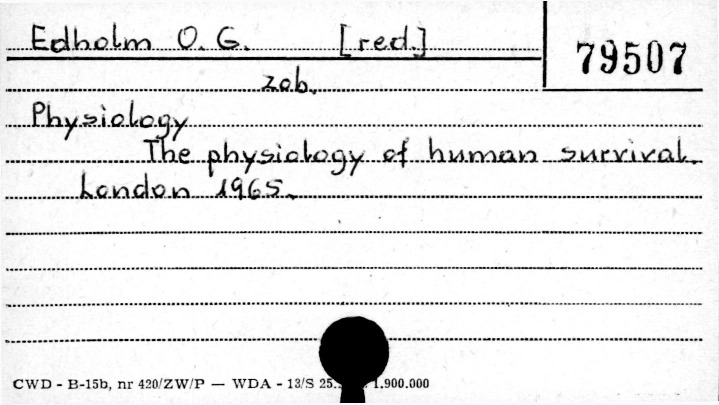 Edholm O. G. [red.]
79507
zob.
Physiology
The physiology of human survival.
London 1965.
CWD - B-15b, nr 420/ZW/P — WDA - 13/S 25. 1.900.000